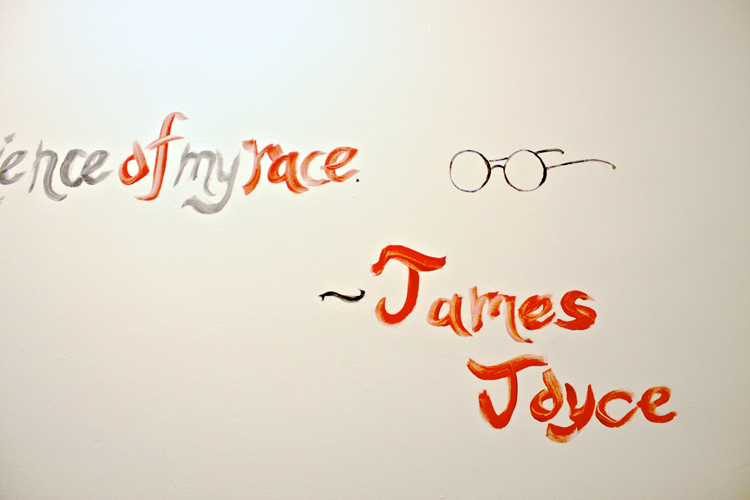 ience of my race.
~James
Joyce